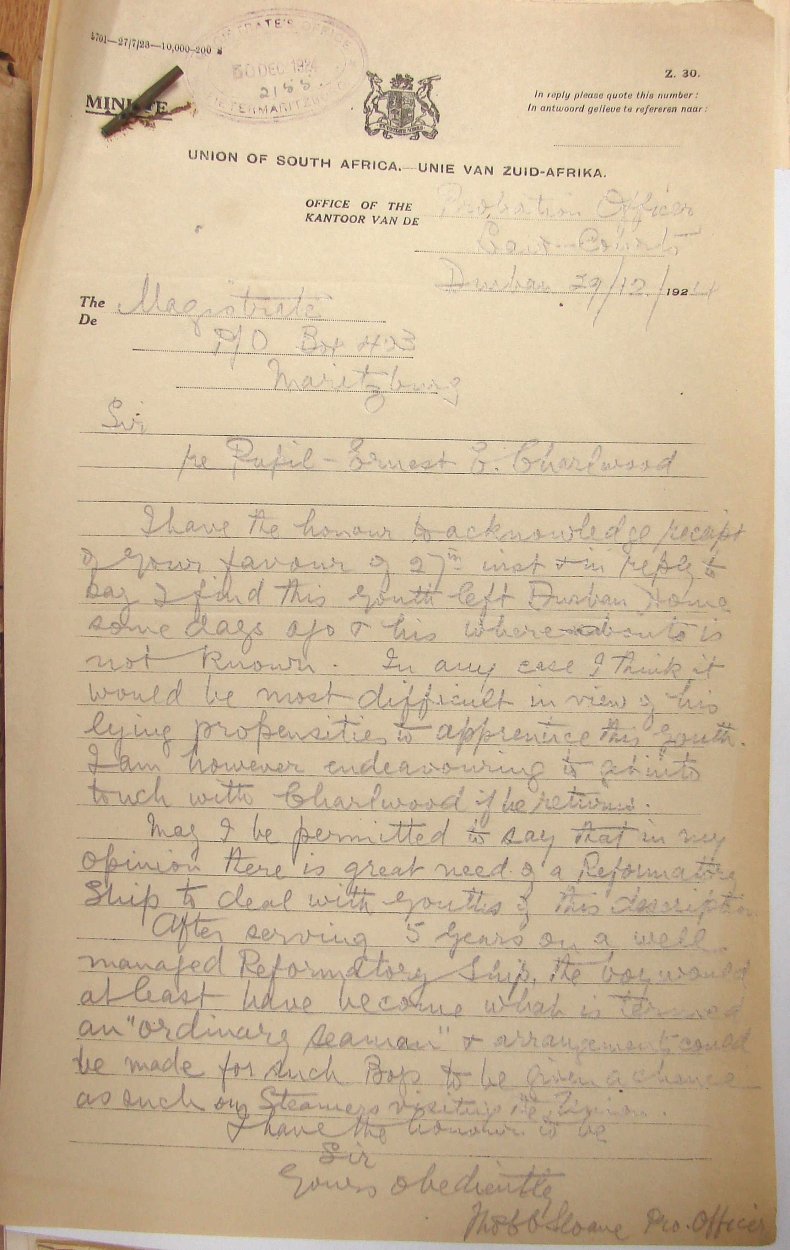 5701—27/7/23—10,000-200 s
MAGISTRATE'S OFFICE
30 DEC 1924
2188
PIETERMARITZBURG
Z. 30.
MINUTE
In reply please quote this number:
In antwoord gelieve te refereren naar:
UNION OF SOUTH AFRICA.—UNIE VAN ZUID-AFRIKA.
OFFICE OF THE
KANTOOR VAN DE
Probation Officer
Law Courts
Durban 29/12/1924
The
De
Magistrate
P/O Box 423
Maritzburg
Sir
re Pupil - Ernest E. Charlwood
I have the honour to acknowledge receipt
of your favour of 27th inst & in reply to
say I find this youth left Durban some
some days ago & his whereabouts is
not known. In any case I think it
would be most difficult in view of his
lying propensities to apprentice this youth.
I am however endeavouring to get into
touch with Charlwood if he returns.
May I be permitted to say that in my
opinion there is great need of a Reformatory
Ship to deal with youths of this description
After serving 5 years on a well
managed Reformatory Ship, the boy would
at least have become what is termed
an "ordinary seaman" & arrangements could
be made for such Boys to be given a chance
as such on Steamers visiting the Union.
I have the honour to be
Sir
Yours obediently
Sloane Pro. Officer